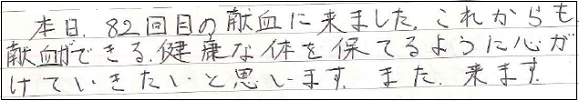 本日、82回目の献血に来ました。これからも
献血ができる、健康な体を保てるように心が
けていきたいと思います。また、来ます。